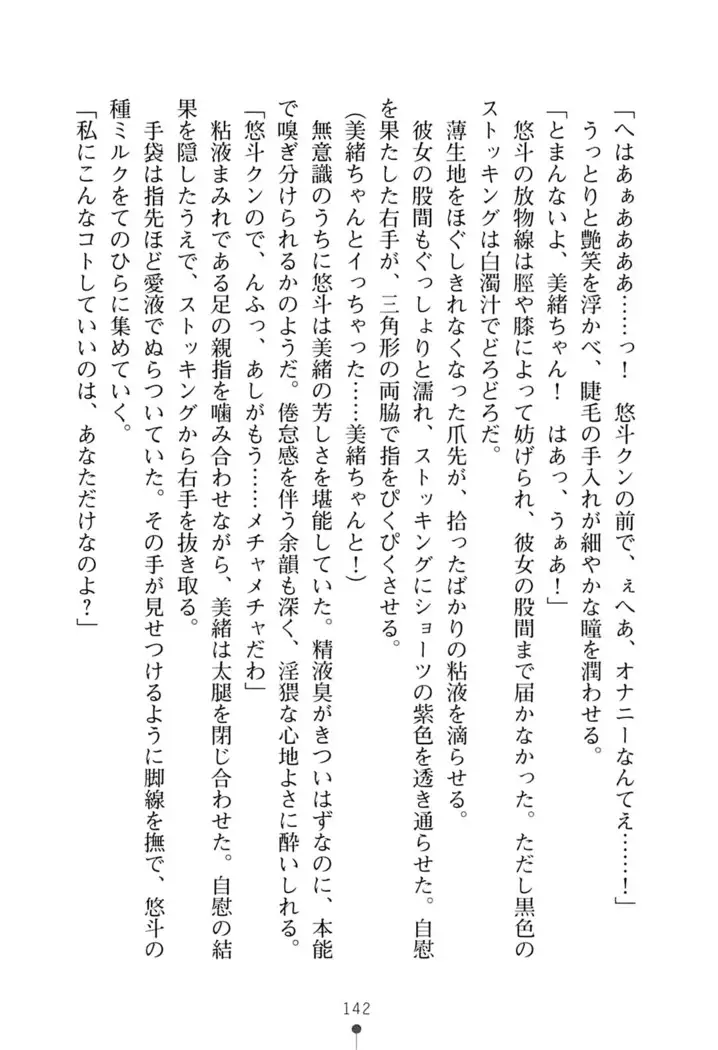 「へはあぁああああ……っ！　悠斗クンの前で、ぇへあ、オナニーなんてえ……！」
　うっとりと艶笑を浮かべ、睫毛の手入れが細やかな瞳を潤わせる。
「とまんないよ、美緒ちゃん！　はあっ、うぁあ！」
　悠斗の放物線は脛や膝によって妨げられ、彼女の股間まで届かなかった。ただし黒色の
ストッキングは白濁汁でどろどろだ。
　薄生地をほぐしきれなくなった爪先が、拾ったばかりの粘液を滴らせる。
　彼女の股間もぐっしょりと濡れ、ストッキングにショーツの紫色を透き通らせた。自慰
を果たした右手が、三角形の両脇で指をぴくぴくさせる。
（美緒ちゃんとイっちゃった……美緒ちゃんと！）
　無意識のうちに悠斗は美緒の芳しさを堪能していた。精液臭がきついはずなのに、本能
で嗅ぎ分けられるかのようだ。倦怠感を伴う余韻も深く、淫猥な心地よさに酔いしれる。
「悠斗クンので、んふっ、あしがもう……メチャメチャだわ」
　粘液まみれである足の親指を噛み合わせながら、美緒は太腿を閉じ合わせた。自慰の結
果を隠したうえで、ストッキングから右手を抜き取る。
　手袋は指先ほど愛液でぬらついていた。その手が見せつけるように脚線を撫で、悠斗の
種ミルクをてのひらに集めていく。
「私にこんなコトしていいのは、あなただけなのよ？」
142